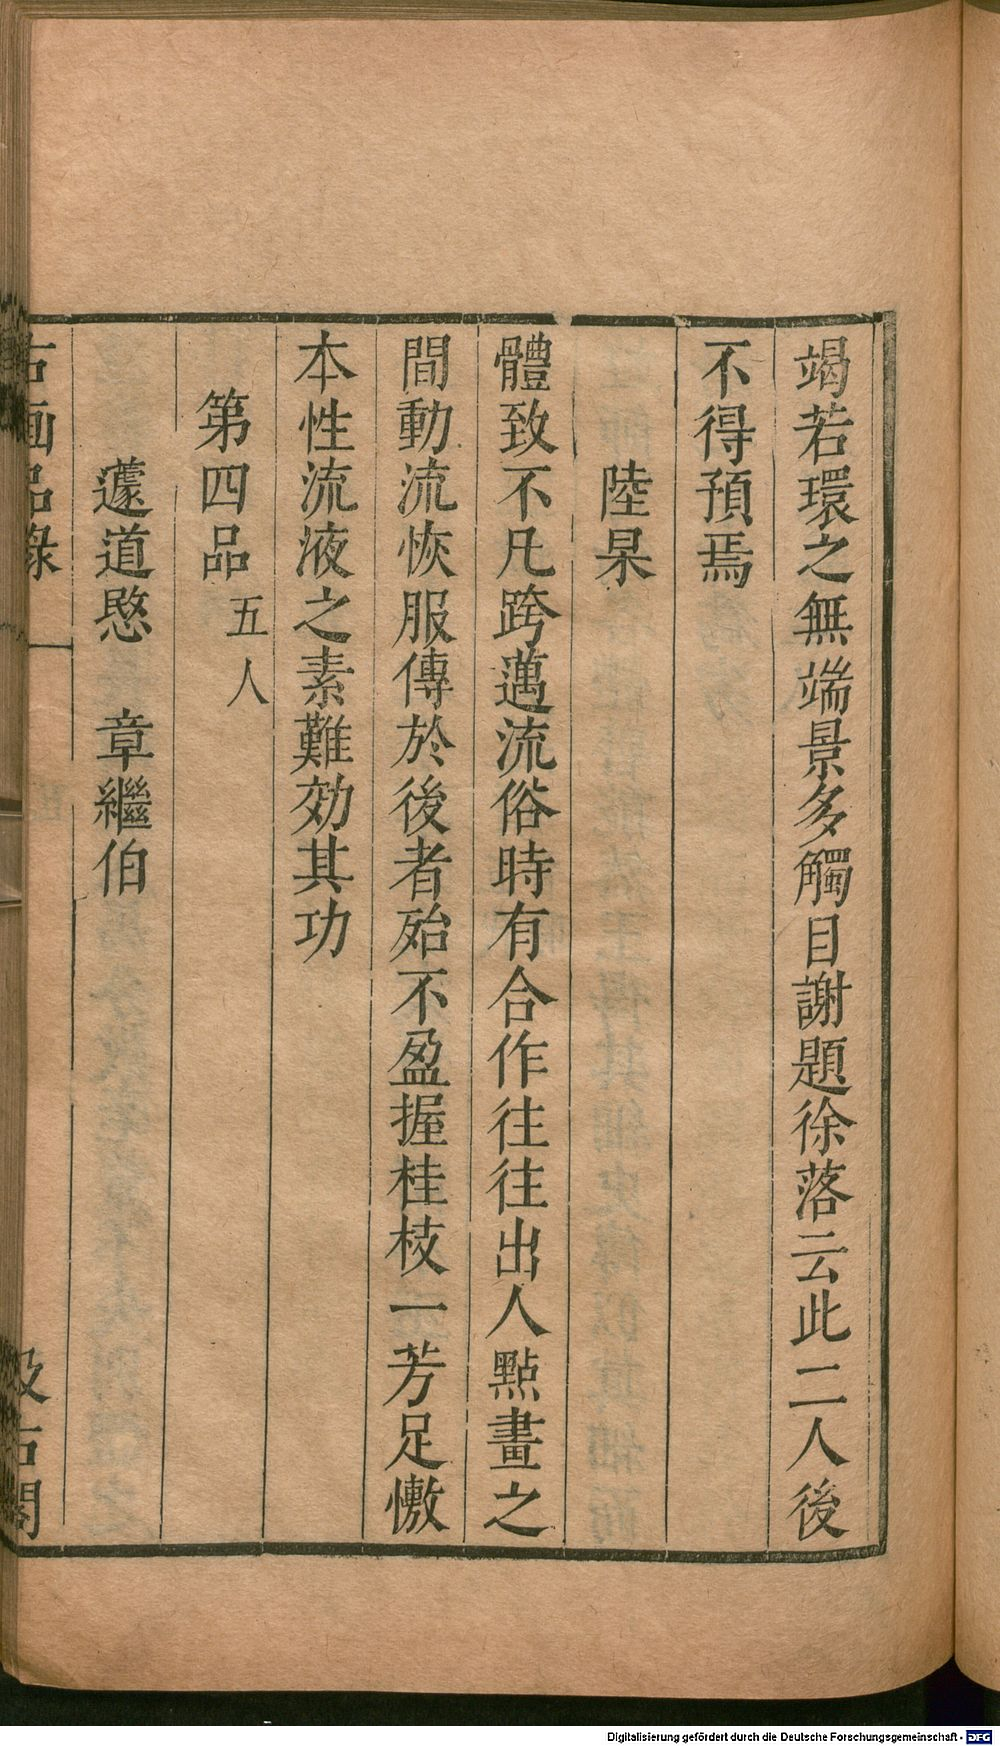 竭若環之無端景多觸目謝題徐落云此二人後
不得預焉
陸杲
體致不凡跨邁流俗時有合作往往出人點畫之
間動流恢服傳於後者殆不盈握桂枝一芳足慠
本性流液之素難効其功
第四品五人
蘧道愍 章繼伯
古画品錄 一 汲古閣
Digitalisierung gefördert durch die Deutsche Forschungsgemeinschaft - DFG